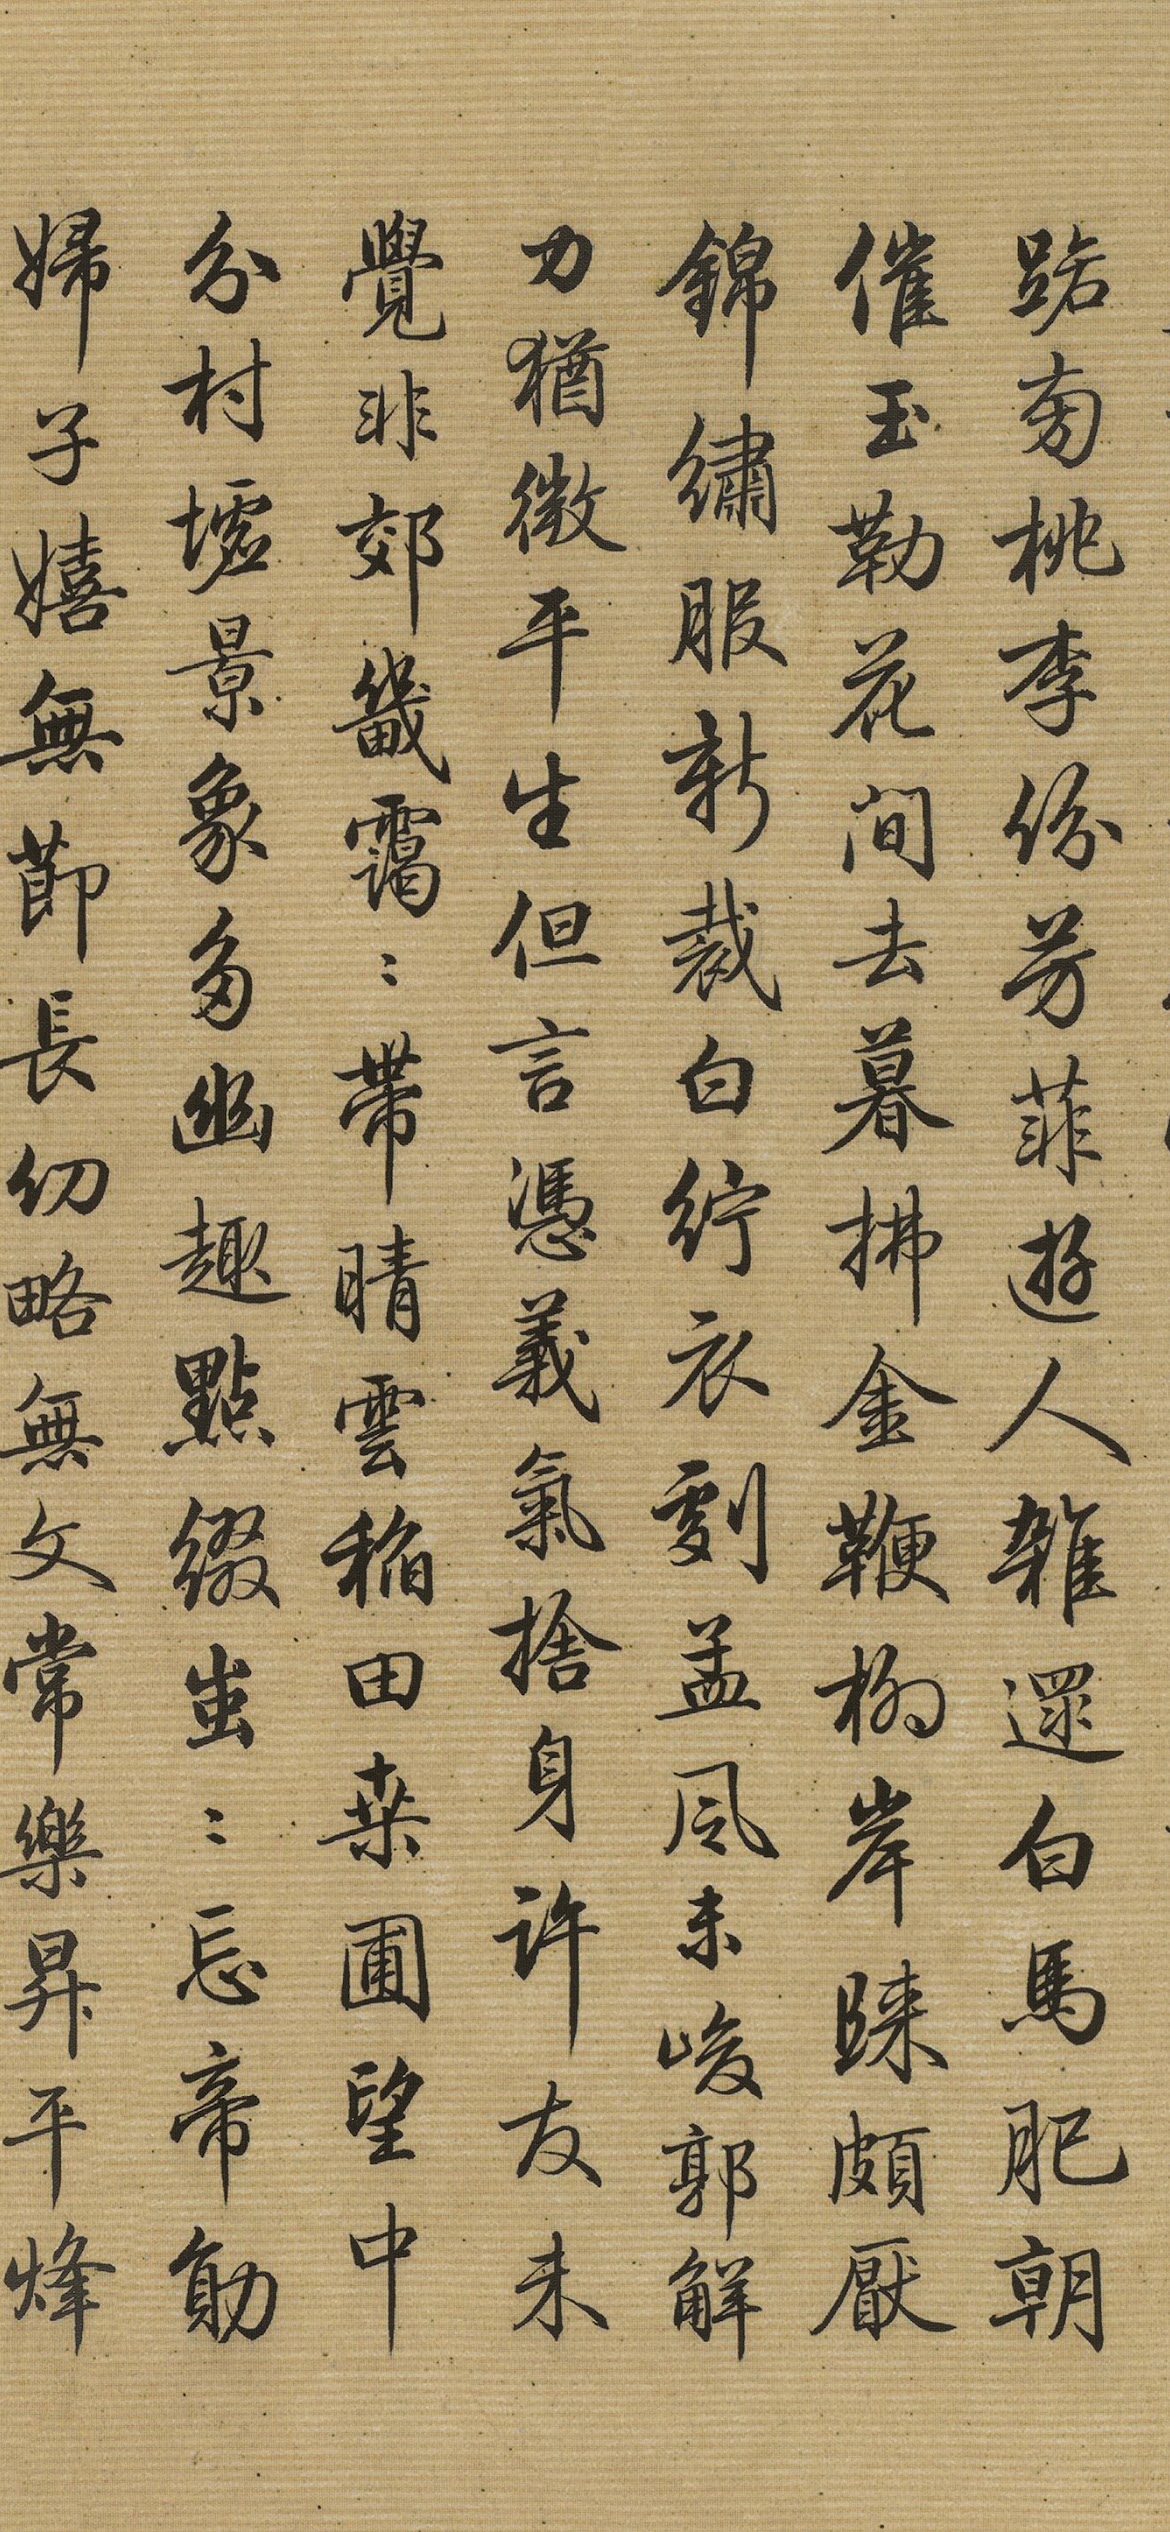 踞南桃李份芳菲遊人雜遝白馬肥朝
催玉勒花間去暮拂金鞭柳岸睞頗厭
錦繡服新裁白紵衣劇孟風未峻郭解
力猶微平生但言憑義氣捨身許友未
覺非郊畿靄〻帶晴雲稻田桒圃望中
分村墟景象多幽趣點綴蚩〻忘帝勛
婦子嬉無節長幼略無文常樂昇平烽